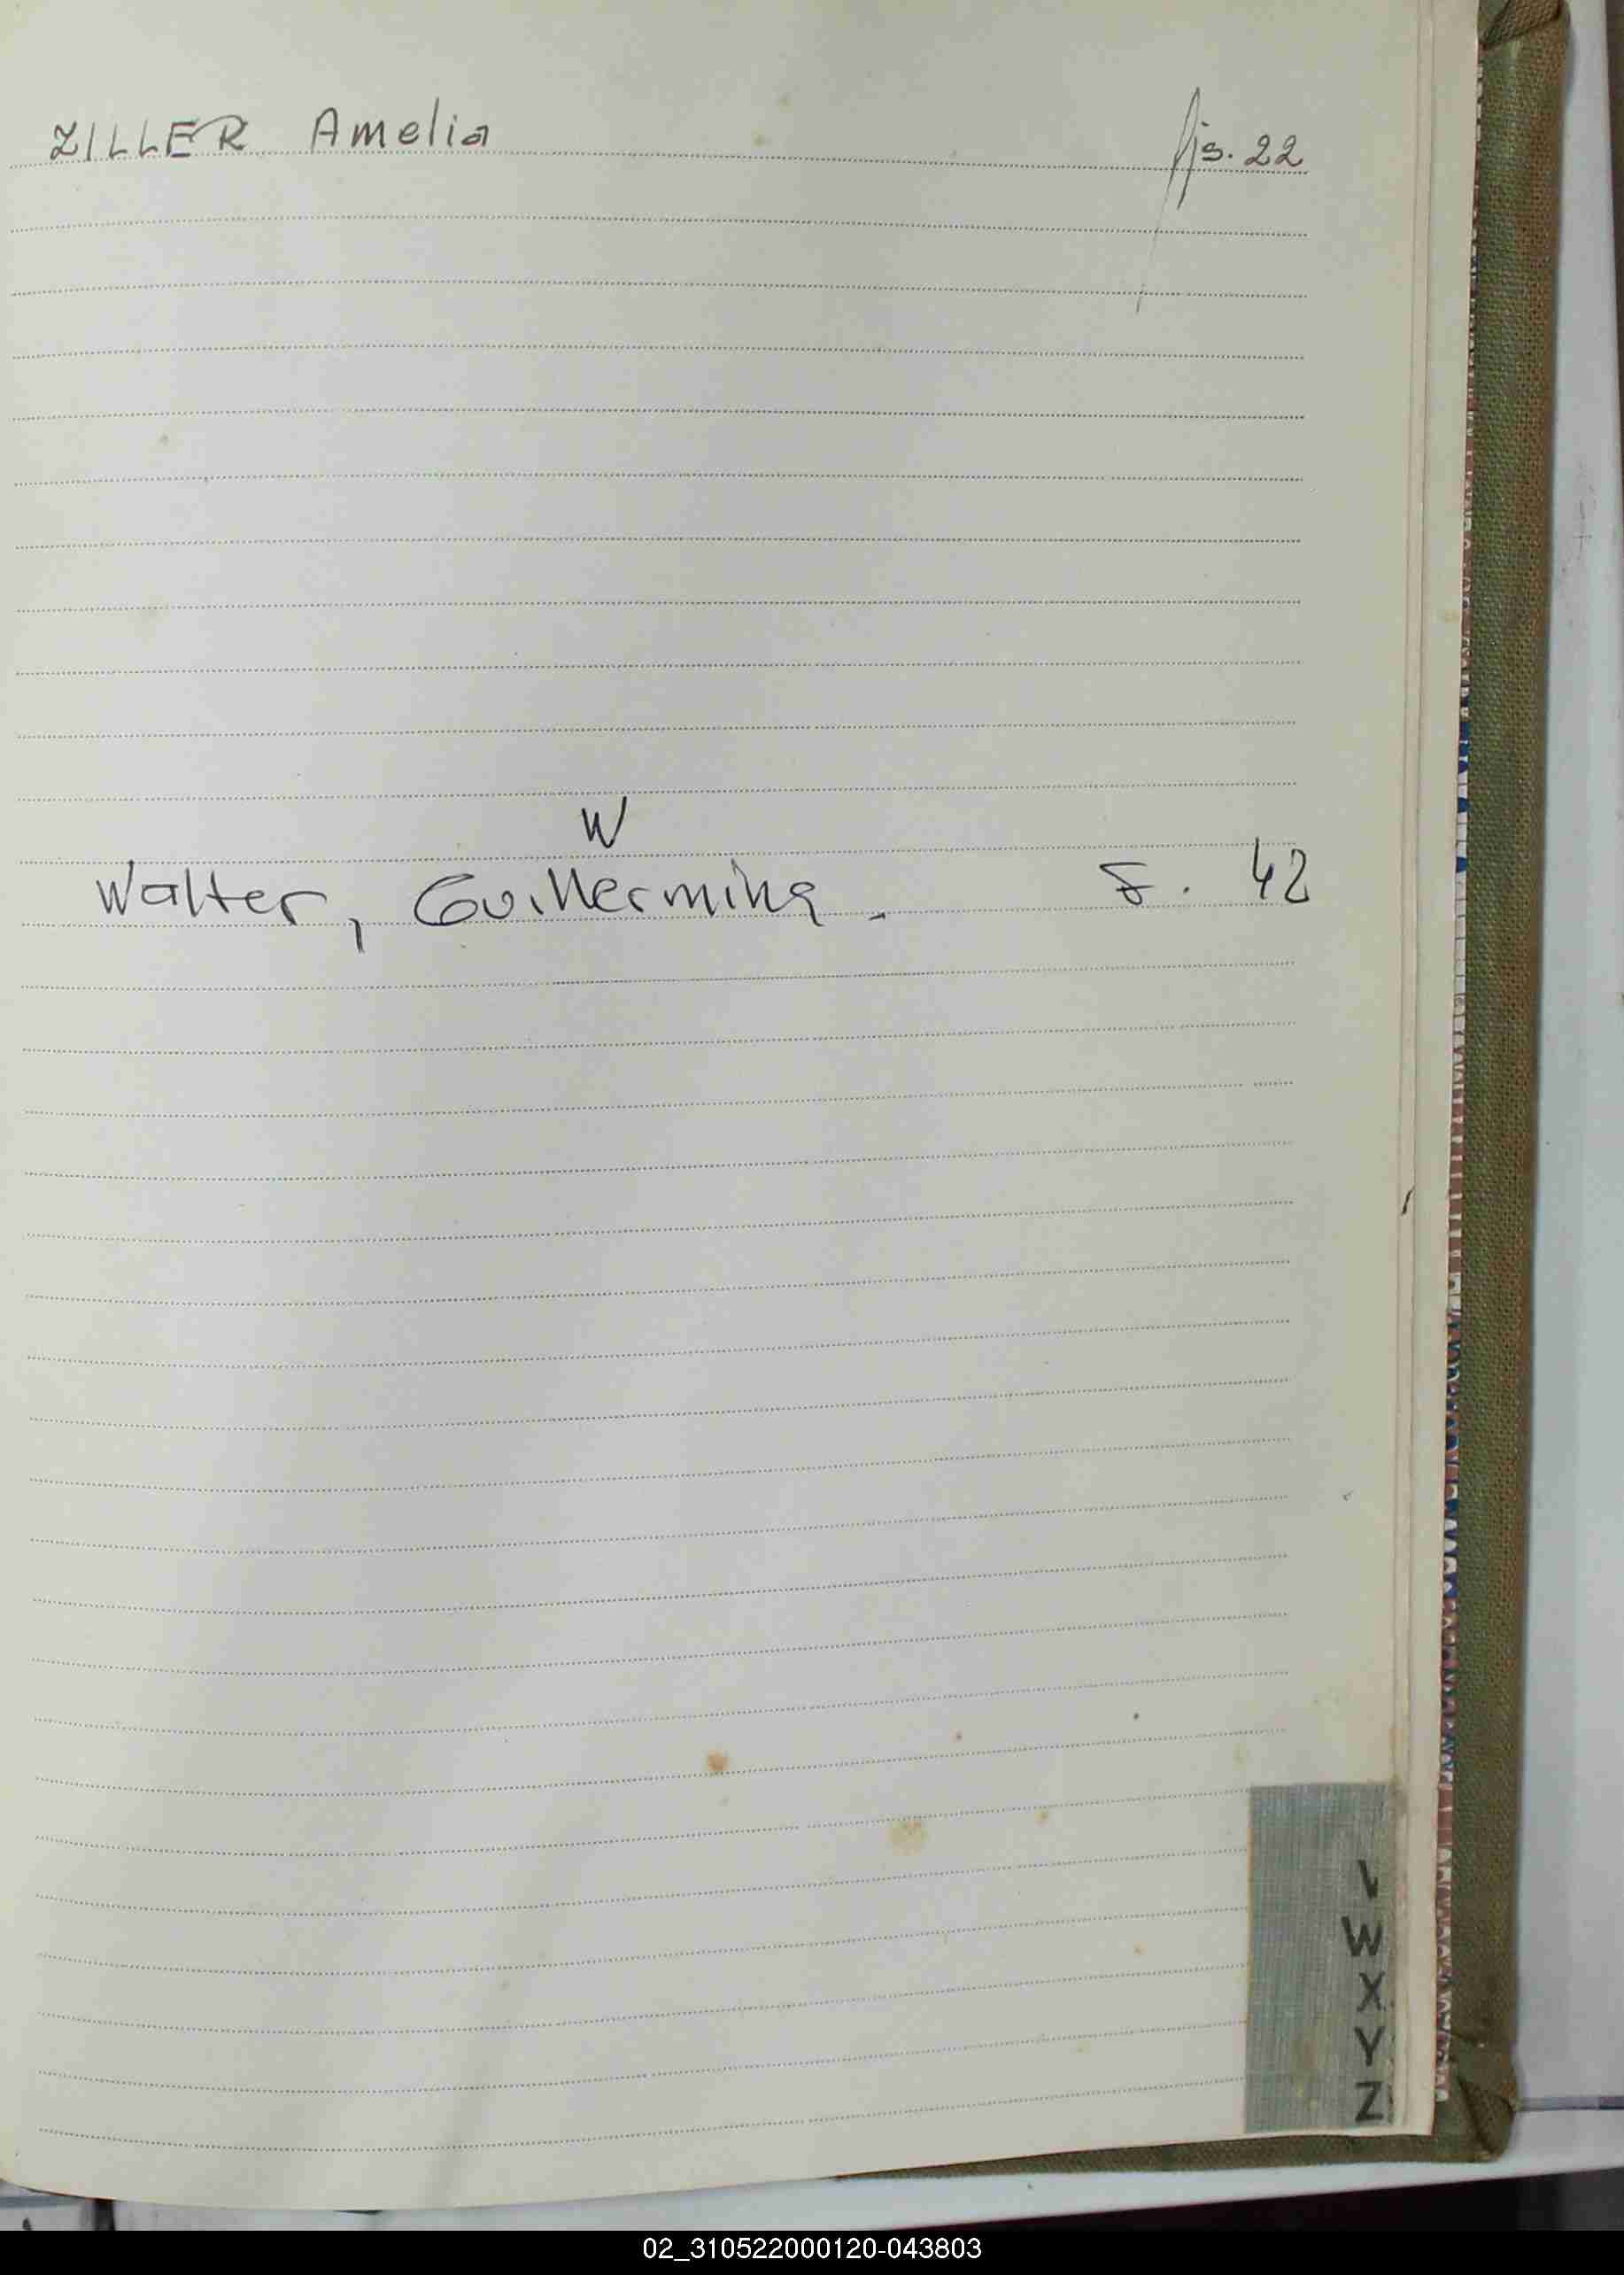 ZILLER Amelia fjs. 22
W
Walter, Guillermina. F. 42
V
W
X
Y
Z
02_310522000120-043803